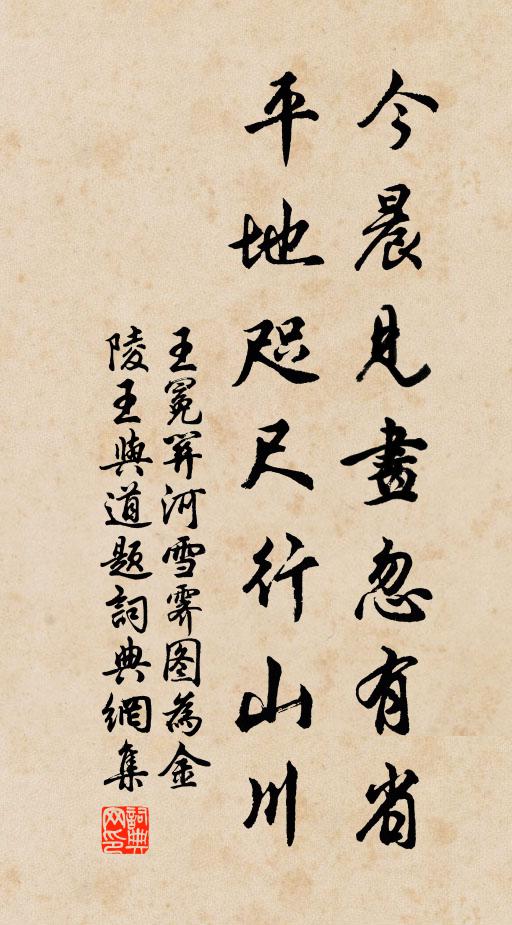 今晨見畫忽有省
平地咫尺行山川
王冕關河雪霽圖為金
陵王與道題詞典網集
詞典網印